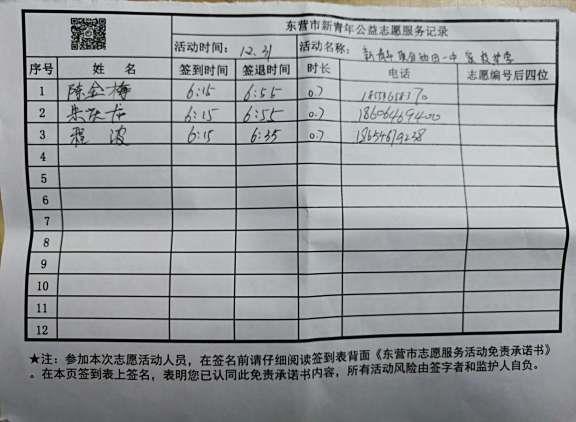 东营市新青年公益志愿服务记录
活动时间： 12.31 活动名称：
序号 姓 名 签到时间 签退时间 时长 电话 志愿编号后四位
1 陈金梅 6:15 6:55 0.7
2 6:15 6:55 0.7 18606469400
3 程波 6:15 6:35 0.7
4
5
6
7
8
9
10
11
12
★注：参加本次志愿活动人员，在签名前请仔细阅读签到表背面《东营市志愿服务活动免责承诺书》
。在本页签到表上签名，表明您已认同此免责承诺书内容，所有活动风险由签字者和监护人自负。